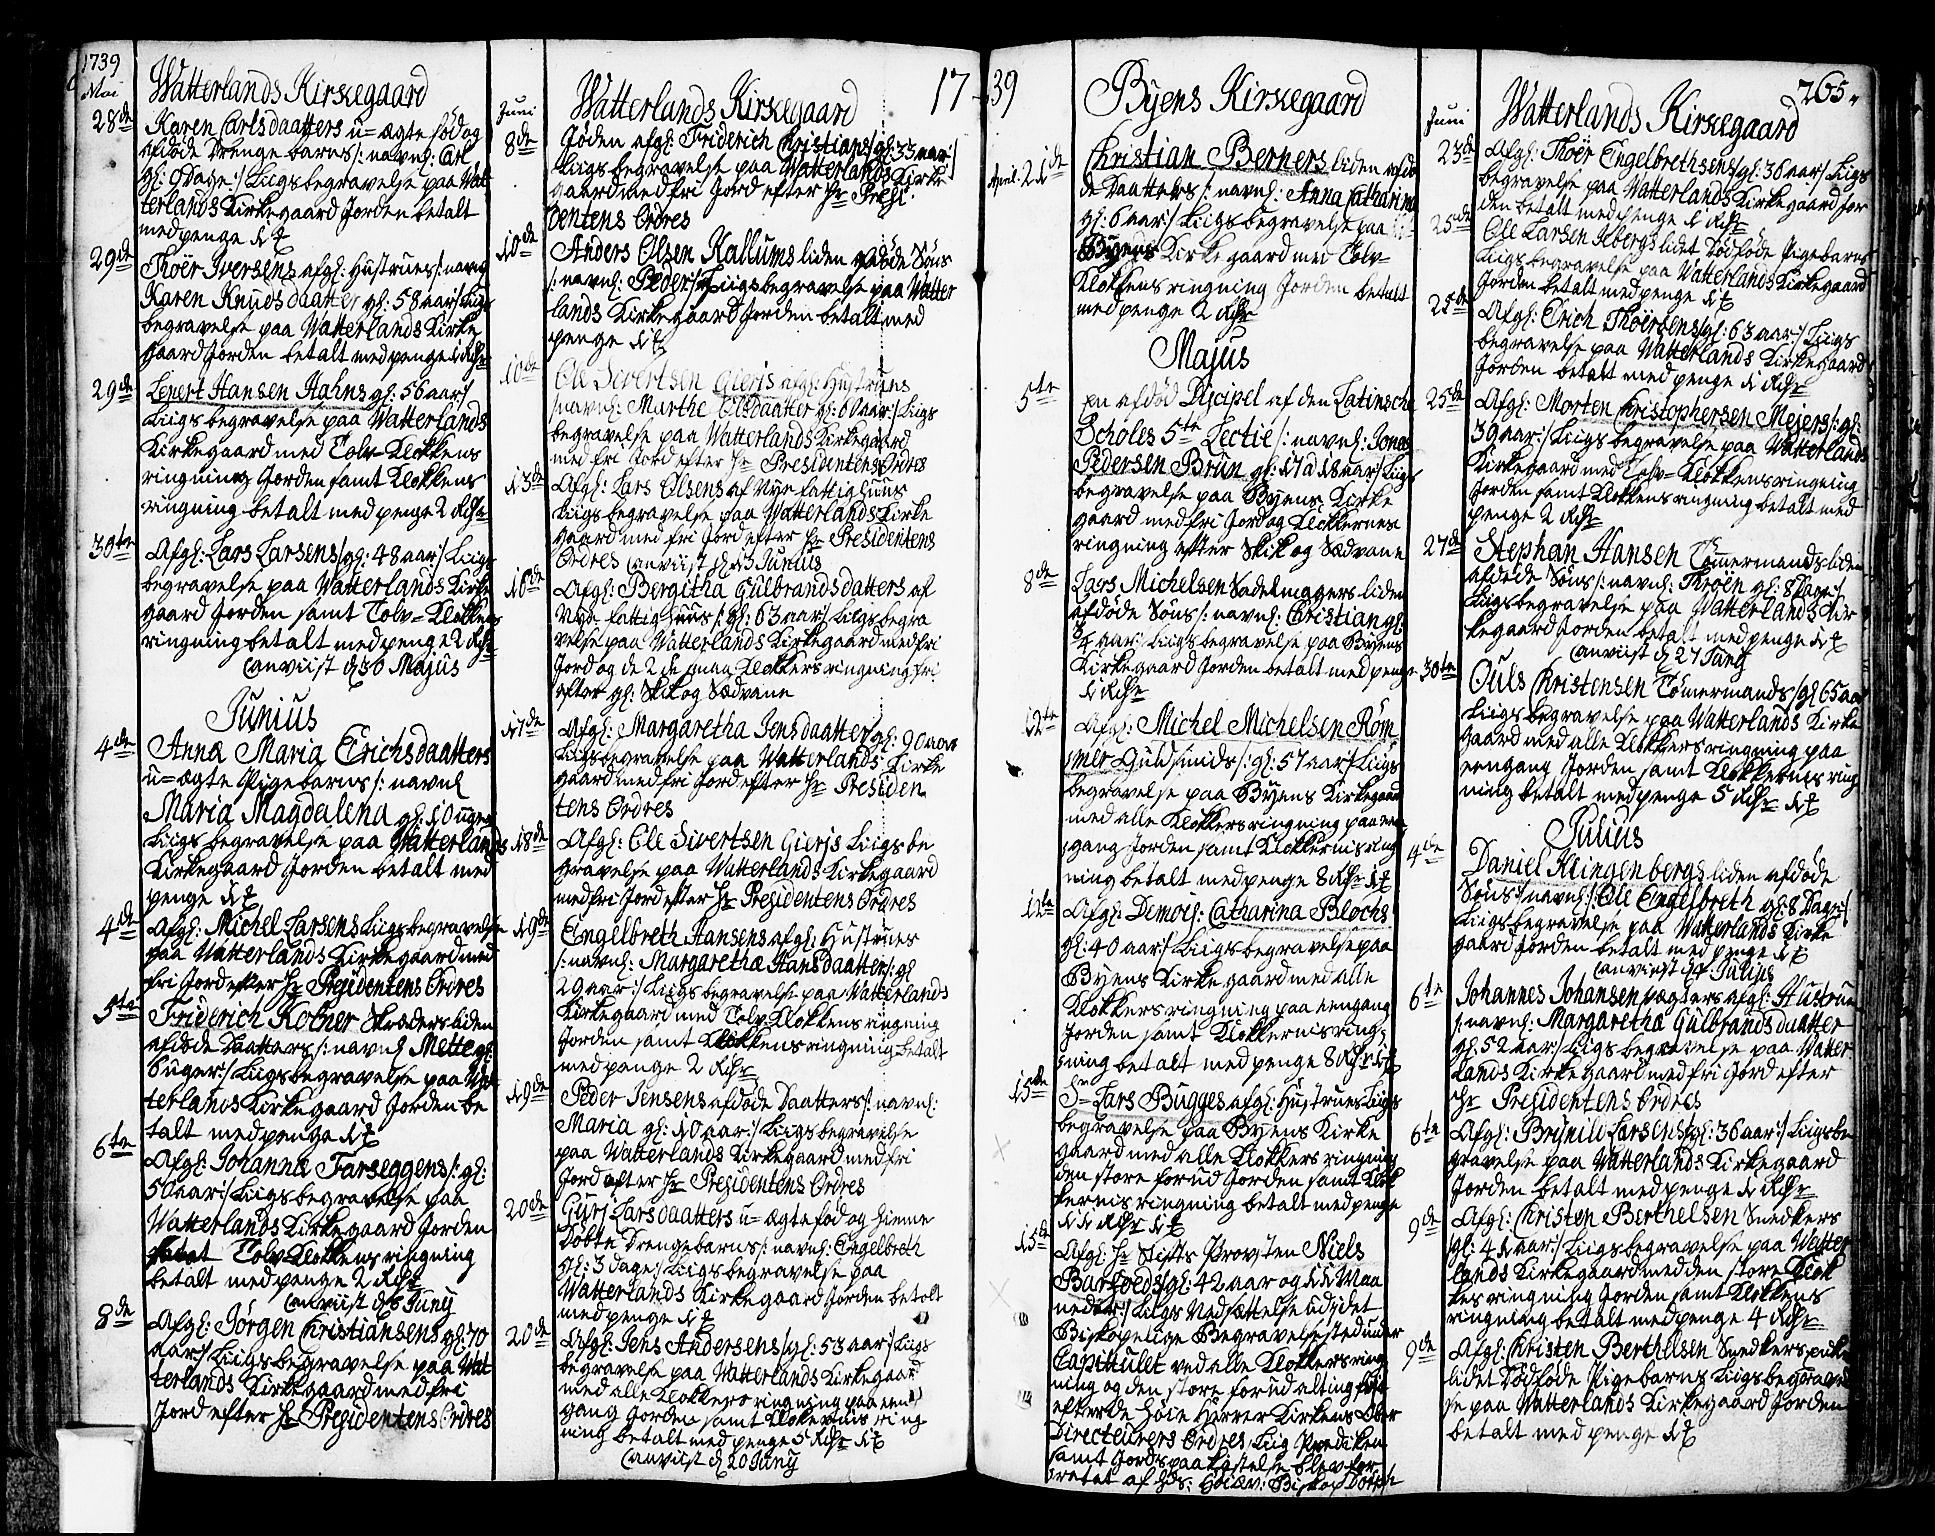 1739
Mai
Watterlands Kirkegaard
28de
Karen Carlsdaatters u=ægte fød og
afdøde Drenge barns /: navnl: Carl
gl: 9 dage :/ Liigs begravelse paa Wat
terlands Kirkegaard Jorden betalt
med penge
29de
Thoer Iversens afgl: Hustrues /: navnl
Karen Knudsdaatter gl: 58 aar :/ Liigs
begravelse paa Watterlands Kirke
gaard Jorden betalt med penge 1 Rdr
29de
Lenert Hansen Hahns gl: 56 aar :/
Liigs begravelse paa Watterlands
Kirkegaard med Tolv Klokkens
ringning Jorden samt Klokkens
ringning betalt med penge 2 Rdr
30te
Afgl: Lars Larsens /: gl: 48 aar :/ Liigs
begravelse paa Watterlands Kirke
gaard Jorden samt Tolv=Klokkens
ringning betalt med penge 2 Rdr
anviist d 30 Majus
Junius
4de
Anna Maria Erichsdaatters
u=ægte Pigebarns /: navnl
Maria Magdalena gl: 10 uger
Liigs begravelse paa Watterlands
Kirkegaard Jorden betalt med
penge
4de
Afgl: Michel Larsens Liigs begravelse
paa Watterlands Kirkegaard med
fri Jord efter Hr Præsidentens Ordres
5te
Friderich Kotner Skræders liden
afdøde Daatters /: navnl Mette gl:
6 uger :/ Liigs begravelse paa Wat
terlands Kirkegaard Jorden be
talt med penge
6te
Afgl: Johanna Farseggens /: gl:
50 aar :/ Liigs begravelse paa
Watterlands Kirkegaard Jorden
Tolv Klokkens ringning
betalt med penge 2 Rdr
anviist d 6 Juny
8de
Afgl: Jørgen Christiansens gl: 70
aar :/ Liigs begravelse paa Wat
terlands Kirkegaard med fri
Jord efter Hr Præsidentens Ordres
Juni
Watterlands Kirkegaard
17
8de
Jøden afgl: Friderich Christians /: gl: 33 aar :/
Liigs begravelse paa Watterlands Kirke
gaard med fri Jord efter Hr Præsi
dentens Ordres
10de
Anders Olsen Kallums liden afdøde Søns
/: navnl: Peder :/ Liigs begravelse paa Watter
lands Kirkegaard Jorden betalt med
penge
10de
Ole Sivertsen Giers afgl: Hustrues
/: navnl: Marthe Olsdaatter gl: 60 aar :/ Liigs
begravelse paa Watterlands Kirkegaard
med fri Jord efter Hr Presidentens Ordres
13de
Afgl: Lars Olsens af Nye fattighuus
Liigs begravelse paa Watterlands Kirke
gaard med fri Jord efter Hr Presidentens
Ordres anviist d 13 Junius
16de
Afgl: Bergitha Gulbrandsdatters af
Nye fattighuus /: gl: 63 aar :/ Liigs begra
velse paa Watterlands Kirkegaard med fri
Jord og de 2de smaa Klokkers ringning fri
efter gl: Skik og Sædvane
17de
Afgl: Margaretha Jensdaatter gl: 90 aar
Liigs begravelse paa Watterlands Kirke
gaard med fri Jord efter Hr Presiden
tens Ordres
18de
Afgl: Ole Sivertsen Giers Liigs be
gravelse paa Watterlands Kirkegaard
med fri Jord efter Hr Presidentens Ordres
19de
Engelbreth Hansens afgl: Hustrues
/: navnl: Margaretha Hansdaatter /: gl
29 aar :/ Liigs begravelse paa Watterlands
Kirkegaard med Tolv Klokkens ringning
Jorden samt Klokkens ringning betalt
med penge 2 Rdr
19de
Peder Jensens afdøde Daatters /: navnl:
Maria gl: 10 aar :/ Liigs begravelse
paa Watterlands Kirkegaard med fri
Jord efter Hr Presidentens Ordres
20de
Guri Larsdaatters u=ægte fød og hieme
døbte Drengebarns /: navnl: Engelbreth
gl: 3 dage :/ Liigs begravelse paa
Watterlands Kirkegaard Jorden betalt
med penge
20de
Afgl: Jens Andersens /: gl: 53 aar :/ Liigs
begravelse paa Watterlands Kirkegaard
med alle Klokkers ringning paa een
gang Jorden samt Klokkernis ring
ning betalt med penge 5 Rdr
anviist d 20 Juny
39
Byens Kirkegaard
April. 21de
Christian Berners liden afdø
de Daatters /: navnl: Anna Catharina
gl: 6 aar :/ Liigs begravelse paa
Byens Kirkegaard med Tolv=
Klokkens ringning Jorden betalt
med penge 2 Rdr
Majus
5te
En afdød Discipel af den Latinsche
Scholes 5te Lectie /: navnl: Jonas
Pedersen Brun gl: 17 a 18 aar :/ Liigs
begravelse paa Byens Kirke
gaard med fri Jord og Klokkernes
ringning efter Skik og Sædvane
8de
Lars Michelsen Sadelmagers liden
afdøde Søns /: navnl: Christian gl:
3/4 aar :/ Liigs begravelse paa Byens
Kirkegaard Jorden betalt med penge
1 Rdr
12te
Afgl: Michel Michelsen Røm
mer Guldsmids /: gl: 57 aar :/ Liigs
begravelse paa Byens Kirkegaard
med alle Klokkers ringning paa een
gang Jorden samt Klokkernis ring
ning betalt med penge 8 Rdr
12te
Afgl: Demois: Catharina Blochs
gl: 40 aar :/ Liigs begravelse paa
Byens Kirkegaard med alle
Klokkers ringning paa eengang
Jorden samt Klokkernis ring=
ning betalt med penge 8 Rdr
15de
Hr Lars Bugges afgl: Hustrues Liigs
begravelse paa Byens Kirke
gaard med alle Klokkers ringning
den store forud Jorden samt Klok
kernis ringning betalt med penge
11 Rdr
15de
Afgl: Hr Stifts Provsten Niels
Barfoeds /: gl: 42 aar og 11 Maa
neder :/ Liigs Nedsættelse udj det
Biskopelige Begravelsested under
Capitulet ved alle Klokkers ring
ning og den store forud alting frit
efter de høie Herrer Kirkens Ober
Directeurers Ordres, Liig Prediken
samt Jords paakastelse blev for
rettet af hds: Høiærv: Biskop
265.
Juni
Watterlands Kirkegaard
23de
Afgl: Thoer Engelbrethsens /: gl: 36 aar :/ Liigs
begravelse paa Watterlands Kirkegaard Jor
den betalt med penge 1 Rdr
25de
Ole Larsen Ilbergs lidet dødfødde Pigebarns
Liigs begravelse paa Watterlands Kirkegaard
Jorden betalt med penge
25de
Afgl: Erich Thoersens /: gl: 63 aar :/ Liigs
begravelse paa Watterlands Kirkegaard
Jorden betalt med penge 1 Rdr
25de
Afgl: Morten Christophersen Mejers /: gl:
39 aar :/ Liigs begravelse paa Watterlands
Kirkegaard med Tolv=Klokkens ringning
Jorden samt Klokkens ringning betalt med
penge 2 Rdr
27de
Stephan Hansen Tømermands liden
afdøde Søns /: navnl: Throen gl: 8 Dage :/
Liigs begravelse paa Watterlands Kir
kegaard Jorden betalt med penge
anviist d 27 Juny
30te
Ouls Christensen Tømermands /: gl 65 aar
Liigs begravelse paa Watterlands Kirke
gaard med alle Klokkers ringning paa
eengang Jorden samt Klokkernis ring
ning betalt med penge 5 Rdr
Julius
4de
Daniel Klingenbergs liden afdøde
Søns /: navnl: Ole Engelbreth gl: 8 Dage :/
Liigs begravelse paa Watterlands Kirke
gaard Jorden betalt med penge
anviist d 4 Julius
6te
Johannes Johansen Vægters afgl: Hustrue
/: navnl: Margaretha Gulbrandsdaatter
gl: 52 aar :/ Liigs begravelse paa Watter
lands Kirkegaard med fri Jord efter
Hr Presidentens Ordres
6te
Afgl: Brynild Larsens /: gl: 36 aar :/ Liigs be
gravelse paa Watterlands Kirkegaard
Jorden betalt med penge 1 Rdr
9de
Afgl: Christen Berthelsen Snedkers
/: gl: 41 aar :/ Liigs begravelse paa Watter
lands Kirkegaard med den store Klok
kes ringning Jorden samt Klokkens
ringning betalt med penge 4 Rdr
9de
Afgl: Christen Berthelsen Snedkers
lidet dødfødde Pigebarns Liigs begravel
se paa Watterlands Kirkegaard Jorden
betalt med penge